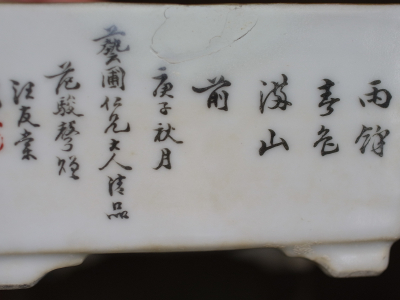 雨餘
春色
滿山
前
庚子秋月
藝圃仁兄大人清品
范駿聲贈
汪友棠